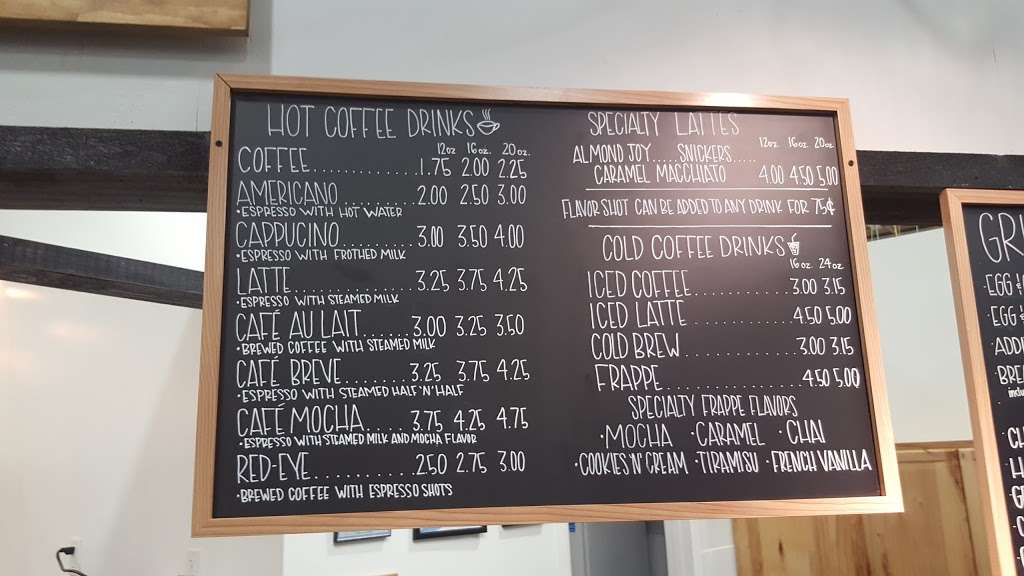 HOT COFFEE DRINKS
12oz 16oz. 20oz.
COFFEE............1.75 2.00 2.25
AMERICANO.........2.00 2.50 3.00
•ESPRESSO WITH HOT WATER
CAPPUCINO.........3.00 3.50 4.00
•ESPRESSO WITH FROTHED MILK
LATTE.............3.25 3.75 4.25
•ESPRESSO WITH STEAMED MILK
CAFÉ AU LAIT......3.00 3.25 3.50
•BREWED COFFEE WITH STEAMED MILK
CAFÉ BREVE........3.25 3.75 4.25
•ESPRESSO WITH STEAMED HALF'N'HALF
CAFÉ MOCHA....3.75 4.25 4.75
•ESPRESSO WITH STEAMED MILK AND MOCHA FLAVOR
RED-EYE...........2.50 2.75 3.00
•BREWED COFFEE WITH ESPRESSO SHOTS
SPECIALTY LATTES
12oz. 16oz. 20oz
ALMOND JOY.....SNICKERS.....
CARAMEL MACCHIATO 4.00 4.50 5.00
FLAVOR SHOT CAN BE ADDED TO ANY DRINK FOR 75¢
COLD COFFEE DRINKS
16oz. 24oz
ICED COFFEE............3.00 3.15
ICED LATTE.............4.50 5.00
COLD BREW..............3.00 3.15
FRAPPE.................4.50 5.00
SPECIALTY FRAPPE FLAVORS
•MOCHA •CARAMEL •CHAI
•COOKIES'N'CREAM •TIRAMISU •FRENCH VANILLA
EGG
EGG